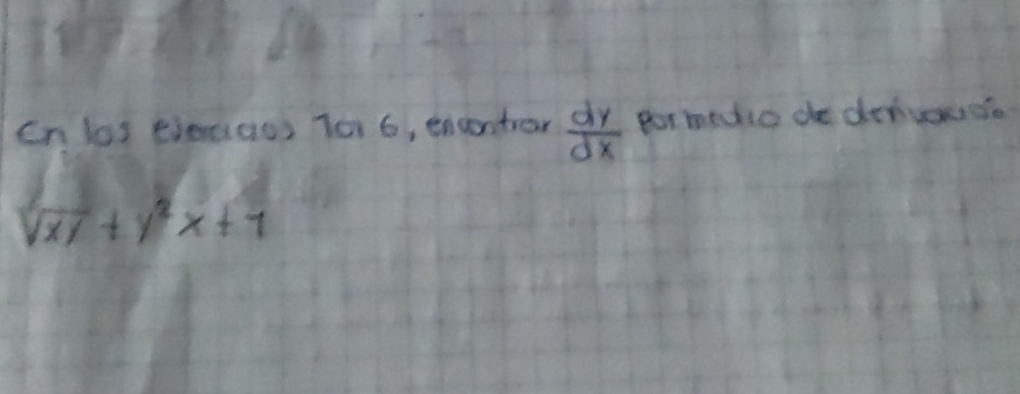 En los ejercicios 1 al 6, encontrar dy/dx por medio de derivación
√xy + y²x + 1